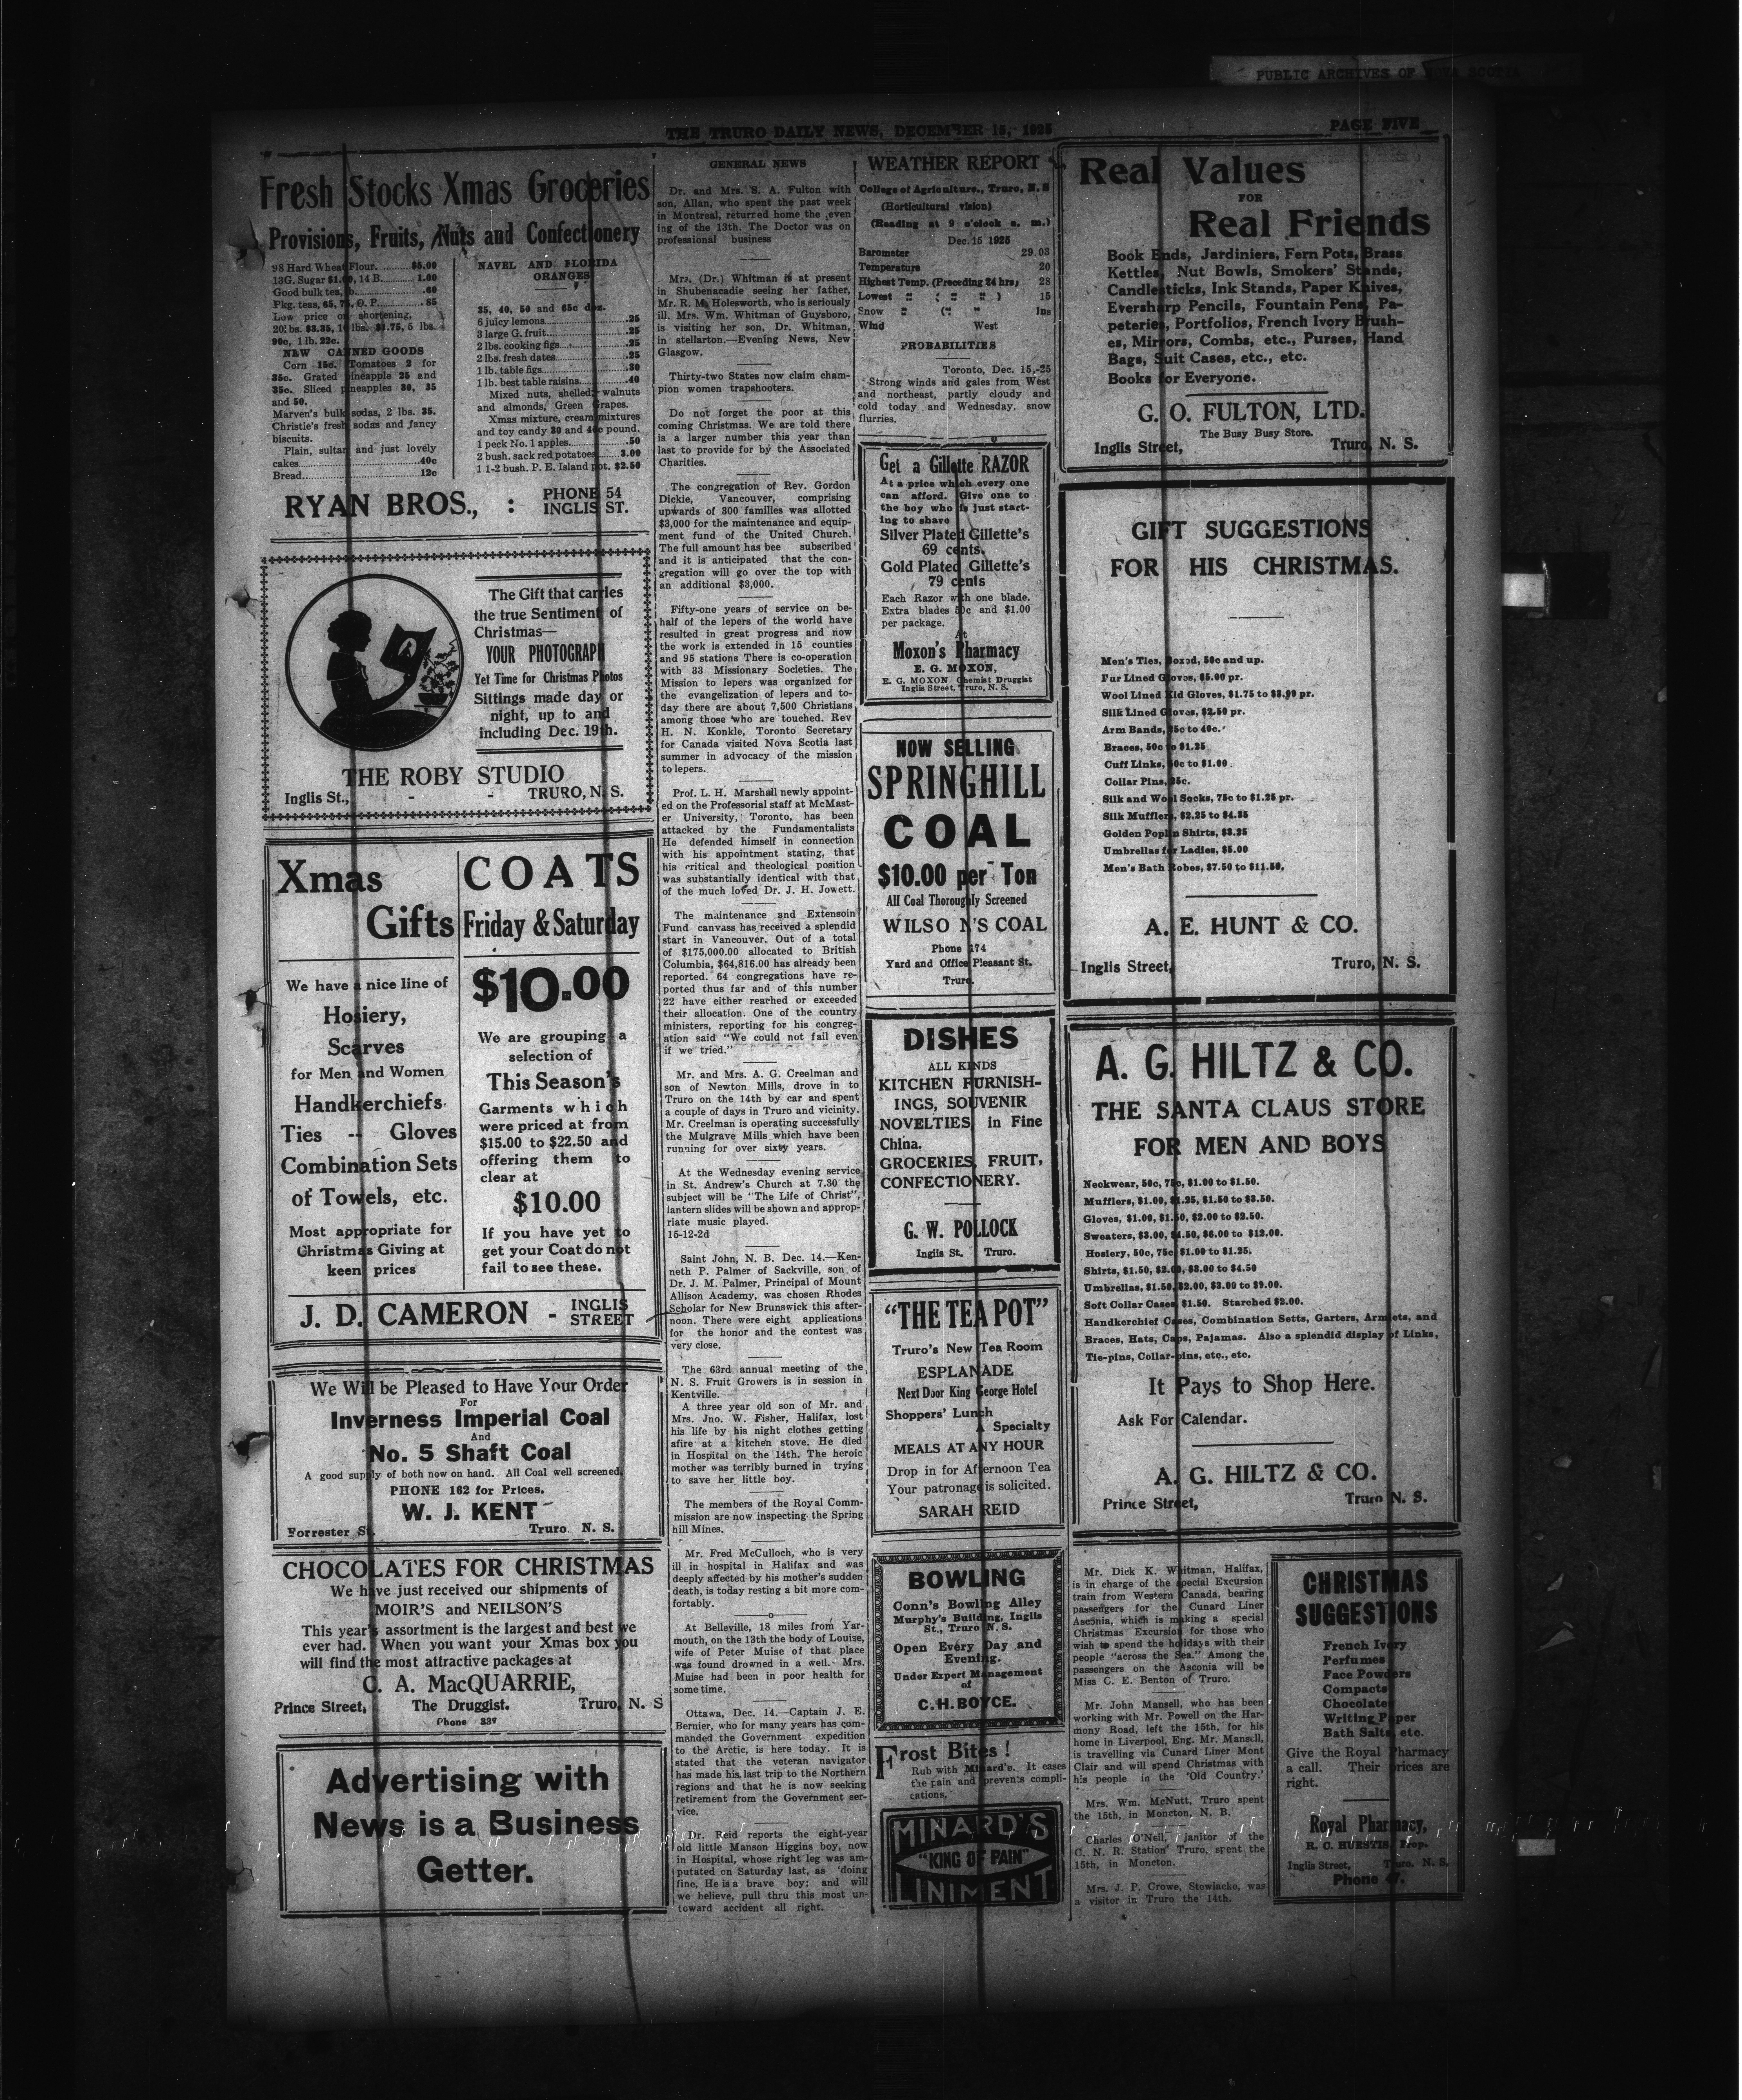 PUBLIC ARCHIVES OF NOVA SCOTIA
THE TRURO DAILY NEWS, DECEMBER 15, 1925
PAGE FIVE
Fresh Stocks Xmas Groceries
Provisions, Fruits, Nuts and Confectionery
98 Hard Wheat Flour. $5.00
13G. Sugar 14 B. 1.00
Good bulk tea, .60
Pkg. teas, 65, O. P. 85
Low price on shortening,
20 lbs. $3.35, lbs. $1.75, 5 lbs.
90c, 1 lb. 22c.
NEW CANNED GOODS
Corn 15c. Tomatoes 2 for
35c. Grated pineapple 25 and
35c. Sliced pineapples 30, 35
and 50.
Marven's bulk sodas, 2 lbs. 35.
Christie's fresh sodas and fancy
biscuits.
Plain, sultan and just lovely
cakes 40c
Bread 12c
NAVEL AND FLORIDA
ORANGES
35, 40, 50 and 65c doz.
6 juicy lemons .25
3 large G. fruit .25
2 lbs. cooking figs .25
2 lbs. fresh dates .25
1 lb. table figs .30
1 lb. best table raisins .40
Mixed nuts, shelled walnuts
and almonds, Green Grapes.
Xmas mixture, cream mixtures
and toy candy 30 and 40c pound.
1 peck No. 1 apples .50
2 bush. sack red potatoes 3.00
1 1-2 bush. P. E. Island pot. $2.50
RYAN BROS., : PHONE 54
INGLIS ST.
The Gift that carries
the true Sentiment of
Christmas—
YOUR PHOTOGRAPH
Yet Time for Christmas Photos
Sittings made day or
night, up to and
including Dec. 19th.
THE ROBY STUDIO
Inglis St., - - TRURO, N. S.
Xmas
Gifts
We have a nice line of
Hosiery,
Scarves
for Men and Women
Handkerchiefs
Ties -- Gloves
Combination Sets
of Towels, etc.
Most appropriate for
Christmas Giving at
keen prices
COATS
Friday & Saturday
$10.00
We are grouping a
selection of
This Season's
Garments which
were priced at from
$15.00 to $22.50 and
offering them to
clear at
$10.00
If you have yet to
get your Coat do not
fail to see these.
J. D. CAMERON - INGLIS
STREET
We Will be Pleased to Have Your Order
For
Inverness Imperial Coal
And
No. 5 Shaft Coal
A good supply of both now on hand. All Coal well screened.
PHONE 162 for Prices.
W. J. KENT
Forrester St. Truro N. S.
CHOCOLATES FOR CHRISTMAS
We have just received our shipments of
MOIR'S and NEILSON'S
This year's assortment is the largest and best we
ever had. When you want your Xmas box you
will find the most attractive packages at
C. A. MacQUARRIE,
Prince Street, The Druggist. Truro, N. S
Phone 337
Advertising with
News is a Business
Getter.
GENERAL NEWS
Dr. and Mrs. S. A. Fulton with
son, Allan, who spent the past week
in Montreal, returned home the even
ing of the 13th. The Doctor was on
professional business
Mrs. (Dr.) Whitman is at present
in Shubenacadie seeing her father,
Mr. R. M. Holesworth, who is seriously
ill. Mrs. Wm. Whitman of Guysboro,
is visiting her son, Dr. Whitman,
in stellarton.—Evening News, New
Glasgow.
Thirty-two States now claim cham-
pion women trapshooters.
Do not forget the poor at this
coming Christmas. We are told there
is a larger number this year than
last to provide for by the Associated
Charities.
The congregation of Rev. Gordon
Dickie, Vancouver, comprising
upwards of 300 families was allotted
$3,000 for the maintenance and equip-
ment fund of the United Church.
The full amount has bee subscribed
and it is anticipated that the con-
gregation will go over the top with
an additional $3,000.
Fifty-one years of service on be-
half of the lepers of the world have
resulted in great progress and now
the work is extended in 15 counties
and 95 stations There is co-operation
with 33 Missionary Societies. The
Mission to lepers was organized for
the evangelization of lepers and to-
day there are about 7,500 Christians
among those who are touched. Rev
H. N. Konkle, Toronto Secretary
for Canada visited Nova Scotia last
summer in advocacy of the mission
to lepers.
Prof. L. H. Marshall newly appoint-
ed on the Professorial staff at McMast-
er University, Toronto, has been
attacked by the Fundamentalists
He defended himself in connection
with his appointment stating, that
his critical and theological position
was substantially identical with that
of the much loved Dr. J. H. Jowett.
The maintenance and Extensoin
Fund canvass has received a splendid
start in Vancouver. Out of a total
of $175,000.00 allocated to British
Columbia, $64,816.00 has already been
reported. 64 congregations have re-
ported thus far and of this number
22 have either reached or exceeded
their allocation. One of the country
ministers, reporting for his congreg-
ation said "We could not fail even
if we tried."
Mr. and Mrs. A. G. Creelman and
son of Newton Mills, drove in to
Truro on the 14th by car and spent
a couple of days in Truro and vicinity.
Mr. Creelman is operating successfully
the Mulgrave Mills which have been
running for over sixty years.
At the Wednesday evening service
in St. Andrew's Church at 7.30 the
subject will be "The Life of Christ",
lantern slides will be shown and approp-
riate music played.
15-12-2d
Saint John, N. B. Dec. 14.—Ken-
neth P. Palmer of Sackville, son of
Dr. J. M. Palmer, Principal of Mount
Allison Academy, was chosen Rhodes
Scholar for New Brunswick this after-
noon. There were eight applications
for the honor and the contest was
very close.
The 63rd annual meeting of the
N. S. Fruit Growers is in session in
Kentville.
A three year old son of Mr. and
Mrs. Jno. W. Fisher, Halifax, lost
his life by his night clothes getting
afire at a kitchen stove. He died
in Hospital on the 14th. The heroic
mother was terribly burned in trying
to save her little boy.
The members of the Royal Comm-
mission are now inspecting the Spring
hill Mines.
Mr. Fred McCulloch, who is very
ill in hospital in Halifax and was
deeply affected by his mother's sudden
death, is today resting a bit more com-
fortably.
At Belleville, 18 miles from Yar-
mouth, on the 13th the body of Louise,
wife of Peter Muise of that place
was found drowned in a well. Mrs.
Muise had been in poor health for
some time.
Ottawa, Dec. 14.—Captain J. E.
Bernier, who for many years has com-
manded the Government expedition
to the Arctic, is here today. It is
stated that the veteran navigator
has made his last trip to the Northern
regions and that he is now seeking
retirement from the Government ser-
vice.
Dr. Reid reports the eight-year
old little Manson Higgins boy, now
in Hospital, whose right leg was am-
putated on Saturday last, as 'doing
fine, He is a brave boy; and will
we believe, pull thru this most un-
toward accident all right.
WEATHER REPORT
College of Agriculture., Truro, N. S
(Horticultural vision)
(Reading at 9 o'clock a. m.)
Dec. 15 1925
Barometer 29.03
Temperature 20
Highest Temp. (Preceding 24 hrs) 28
Lowest " ( " " ) 15
Snow " (" " 1ns
Wind West
PROBABILITIES
Toronto, Dec. 15,-25
Strong winds and gales from West
and northeast, partly cloudy and
cold today and Wednesday. snow
flurries.
Get a Gillette RAZOR
At a price which every one
can afford. Give one to
the boy who is just start-
ing to shave
Silver Plated Gillette's
69 cents.
Gold Plated Gillette's
79 cents
Each Razor with one blade.
Extra blades 50c and $1.00
per package.
At
Moxon's Pharmacy
E. G. MOXON,
E. G. MOXON Chemist Druggist
Inglis Street, Truro, N. S.
NOW SELLING
SPRINGHILL
COAL
$10.00 per Ton
All Coal Thoroughly Screened
WILSON'S COAL
Phone 174
Yard and Office Pleasant St.
Truro.
DISHES
ALL KINDS
KITCHEN FURNISH-
INGS, SOUVENIR
NOVELTIES in Fine
China.
GROCERIES, FRUIT,
CONFECTIONERY.
G. W. POLLOCK
Inglis St. Truro.
"THE TEA POT"
Truro's New Tea Room
ESPLANADE
Next Door King George Hotel
Shoppers' Lunch
A Specialty
MEALS AT ANY HOUR
Drop in for Afternoon Tea
Your patronage is solicited.
SARAH REID
BOWLING
Conn's Bowling Alley
Murphy's Building, Inglis
St., Truro N. S.
Open Every Day and
Evening.
Under Expert Management
of
C. H. BOYCE.
Frost Bites !
Rub with Minard's. It eases
the pain and prevents compli-
cations.
MINARD'S
"KING OF PAIN"
LINIMENT
Real Values
FOR
Real Friends
Book Ends, Jardiniers, Fern Pots, Brass
Kettles, Nut Bowls, Smokers' Stands,
Candlesticks, Ink Stands, Paper Knives,
Eversharp Pencils, Fountain Pens, Pa-
peteries, Portfolios, French Ivory Brush-
es, Mirrors, Combs, etc., Purses, Hand
Bags, Suit Cases, etc., etc.
Books for Everyone.
G. O. FULTON, LTD.
The Busy Busy Store.
Inglis Street, Truro, N. S.
GIFT SUGGESTIONS
FOR HIS CHRISTMAS.
Men's Ties, Boxed, 50c and up.
Fur Lined Gloves, $5.00 pr.
Wool Lined Kid Gloves, $1.75 to pr.
Silk Lined Gloves, $2.50 pr.
Arm Bands, 25c to 40c.
Braces, 50c to $1.25
Cuff Links, to $1.00.
Collar Pins, 25c.
Silk and Wool Socks, 75c to $1.25 pr.
Silk Mufflers, $2.25 to $4.35
Golden Poplin Shirts, $3.25
Umbrellas for Ladies, $5.00
Men's Bath Robes, $7.50 to $11.50.
A. E. HUNT & CO.
Inglis Street, Truro, N. S.
A. G. HILTZ & CO.
THE SANTA CLAUS STORE
FOR MEN AND BOYS
Neckwear, 50c, 75c, $1.00 to $1.50.
Mufflers, $1.00, $1.25, $1.50 to $3.50.
Gloves, $1.00, $1.50, $2.00 to $2.50.
Sweaters, $3.00, $4.50, $6.00 to $12.00.
Hosiery, 50c, 75c, $1.00 to $1.25.
Shirts, $1.50, $2.00, $3.00 to $4.50
Umbrellas, $1.50, $2.00, $3.00 to $9.00.
Soft Collar Cases, $1.50. Starched $2.00.
Handkerchief Cases, Combination Setts, Garters, Armlets, and
Braces, Hats, Caps, Pajamas. Also a splendid display of Links,
Tie-pins, Collar-pins, etc., etc.
It Pays to Shop Here.
Ask For Calendar.
A. G. HILTZ & CO.
Prince Street, Truro N. S.
Mr. Dick K. Whitman, Halifax,
is in charge of the special Excursion
train from Western Canada, bearing
passengers for the Cunard Liner
Asconia, which is making a special
Christmas Excursion for those who
wish to spend the holidays with their
people "across the Sea." Among the
passengers on the Asconia will be
Miss C. E. Benton of Truro.
Mr. John Mansell, who has been
working with Mr. Powell on the Har-
mony Road, left the 15th, for his
home in Liverpool, Eng. Mr. Mansell,
is travelling via Cunard Liner Mont
Clair and will spend Christmas with
his people in the 'Old Country.'
Mrs. Wm. McNutt, Truro spent
the 15th, in Moncton, N. B.
Charles O'Neil, janitor of the
C. N. R. Station' Truro, spent the
15th, in Moncton.
Mrs. J. P. Crowe, Stewiacke, was
a visitor in Truro the 14th.
CHRISTMAS
SUGGESTIONS
French Ivory
Perfumes
Face Powders
Compacts
Chocolates
Writing Paper
Bath Salts, etc.
Give the Royal Pharmacy
a call. Their prices are
right.
Royal Pharmacy,
R. C. HUESTIS, Prop.
Inglis Street, Truro, N. S.
Phone